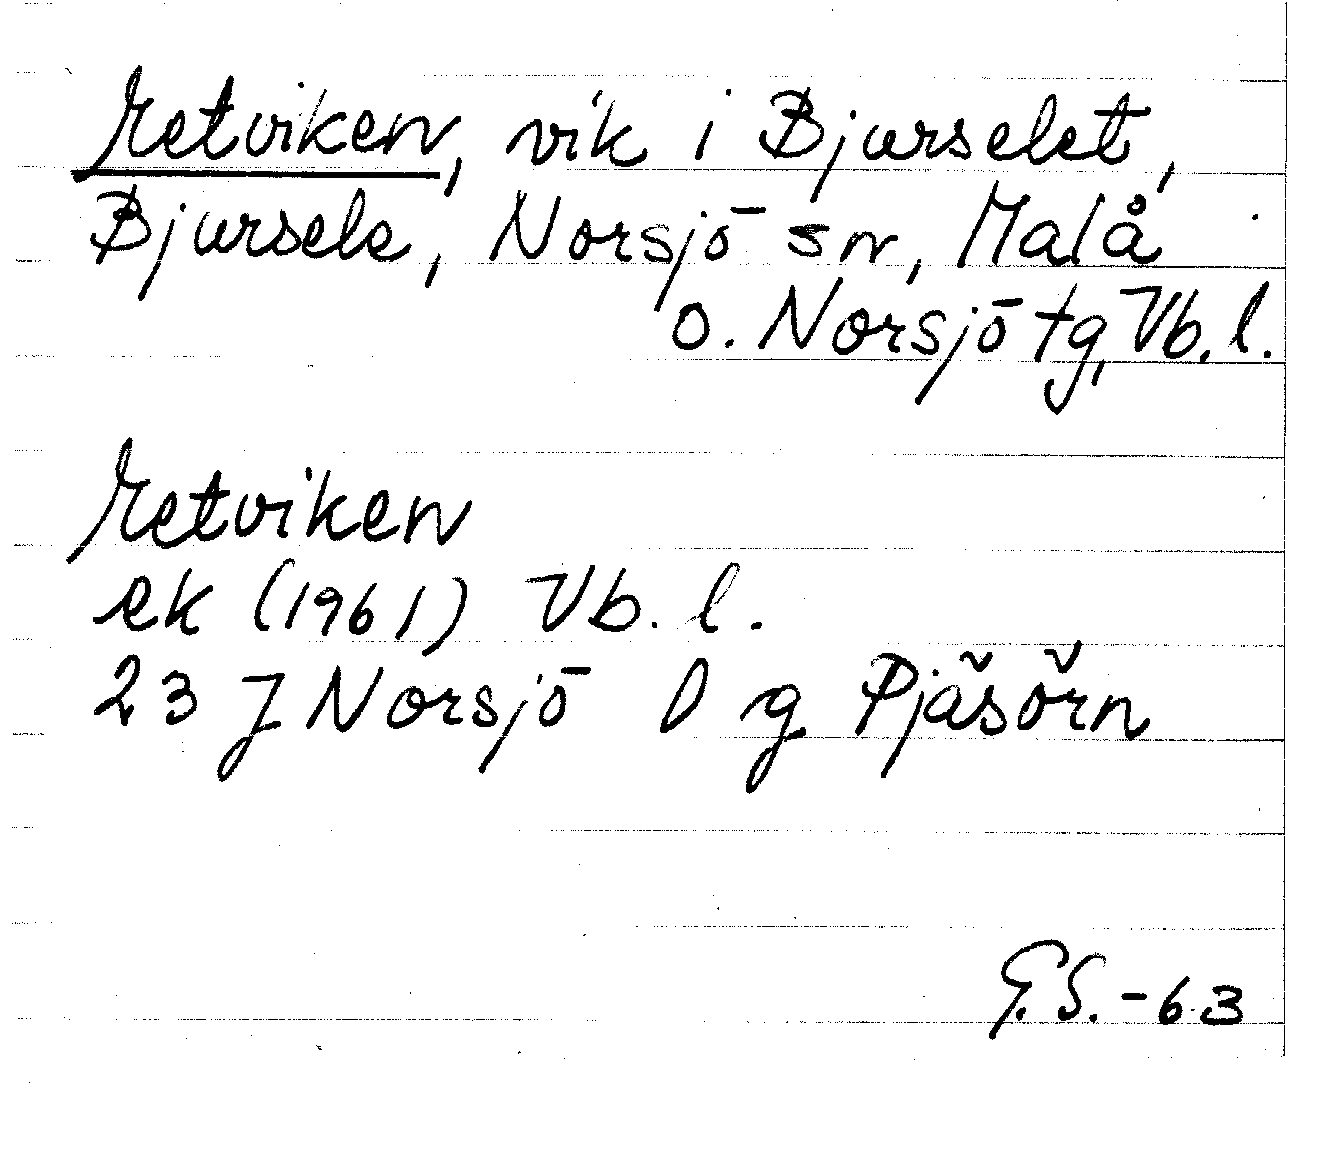 vik i Bjurselet,
Bjursele, Norsjö sn, Malå
o. Norsjö tg, Vb. l.
ek (1961) Vb. l.
23 J Norsjö 0 g Pjäsörn
G.S. -63